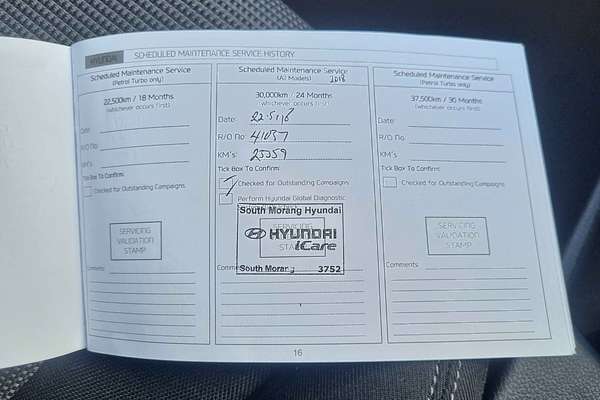 HYUNDAI SCHEDULED MAINTENANCE SERVICE HISTORY
Scheduled Maintenance Service
(Petrol Turbo only)
22,500km / 18 Months
(whichever occurs first)
Date:
R/O No:
KM's:
Tick Box To Confirm:
Checked for Outstanding Campaigns
SERVICING
VALIDATION
STAMP
Comments:
Scheduled Maintenance Service
(All Models) 2018
30,000km / 24 Months
(whichever occurs first)
Date: 22-5-18
R/O No: 41037
KM's: 25259
Tick Box To Confirm:
Checked for Outstanding Campaigns
Perform Hyundai Global Diagnostic
South Morang Hyundai
HYUNDAI
iCare
STAMP
South Morang 3752
Scheduled Maintenance Service
(Petrol Turbo only)
37,500km / 30 Months
(whichever occurs first)
Date:
R/O No:
KM's:
Tick Box To Confirm:
Checked for Outstanding Campaigns
SERVICING
VALIDATION
STAMP
Comments:
16